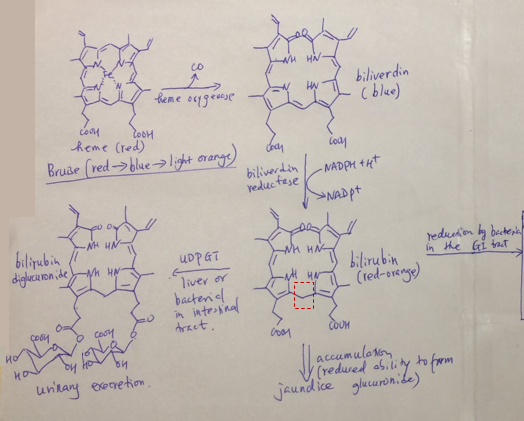 Fe
N
N
N
N
COOH
COOH
heme (red)
CO
heme oxygenase
O O
NH HN
N HN
COOH
COOH
biliverdin
(blue)
Bruise (red → blue → light orange)
biliverdin
reductase
NADPH + H+
NADP+
O O
NH HN
NH HN
COOH
COOH
bilirubin
(red-orange)
reduction by bacteria
in the GI tract
UDPGT
liver or
bacterial
in intestinal
tract.
bilirubin
diglucuronide
O O
NH HN
NH HN
O
O
O
O
COOH
COOH
HO
HO
OH
HO
HO
OH
urinary excretion.
accumulation
(reduced ability to form
glucuronide)
jaundice